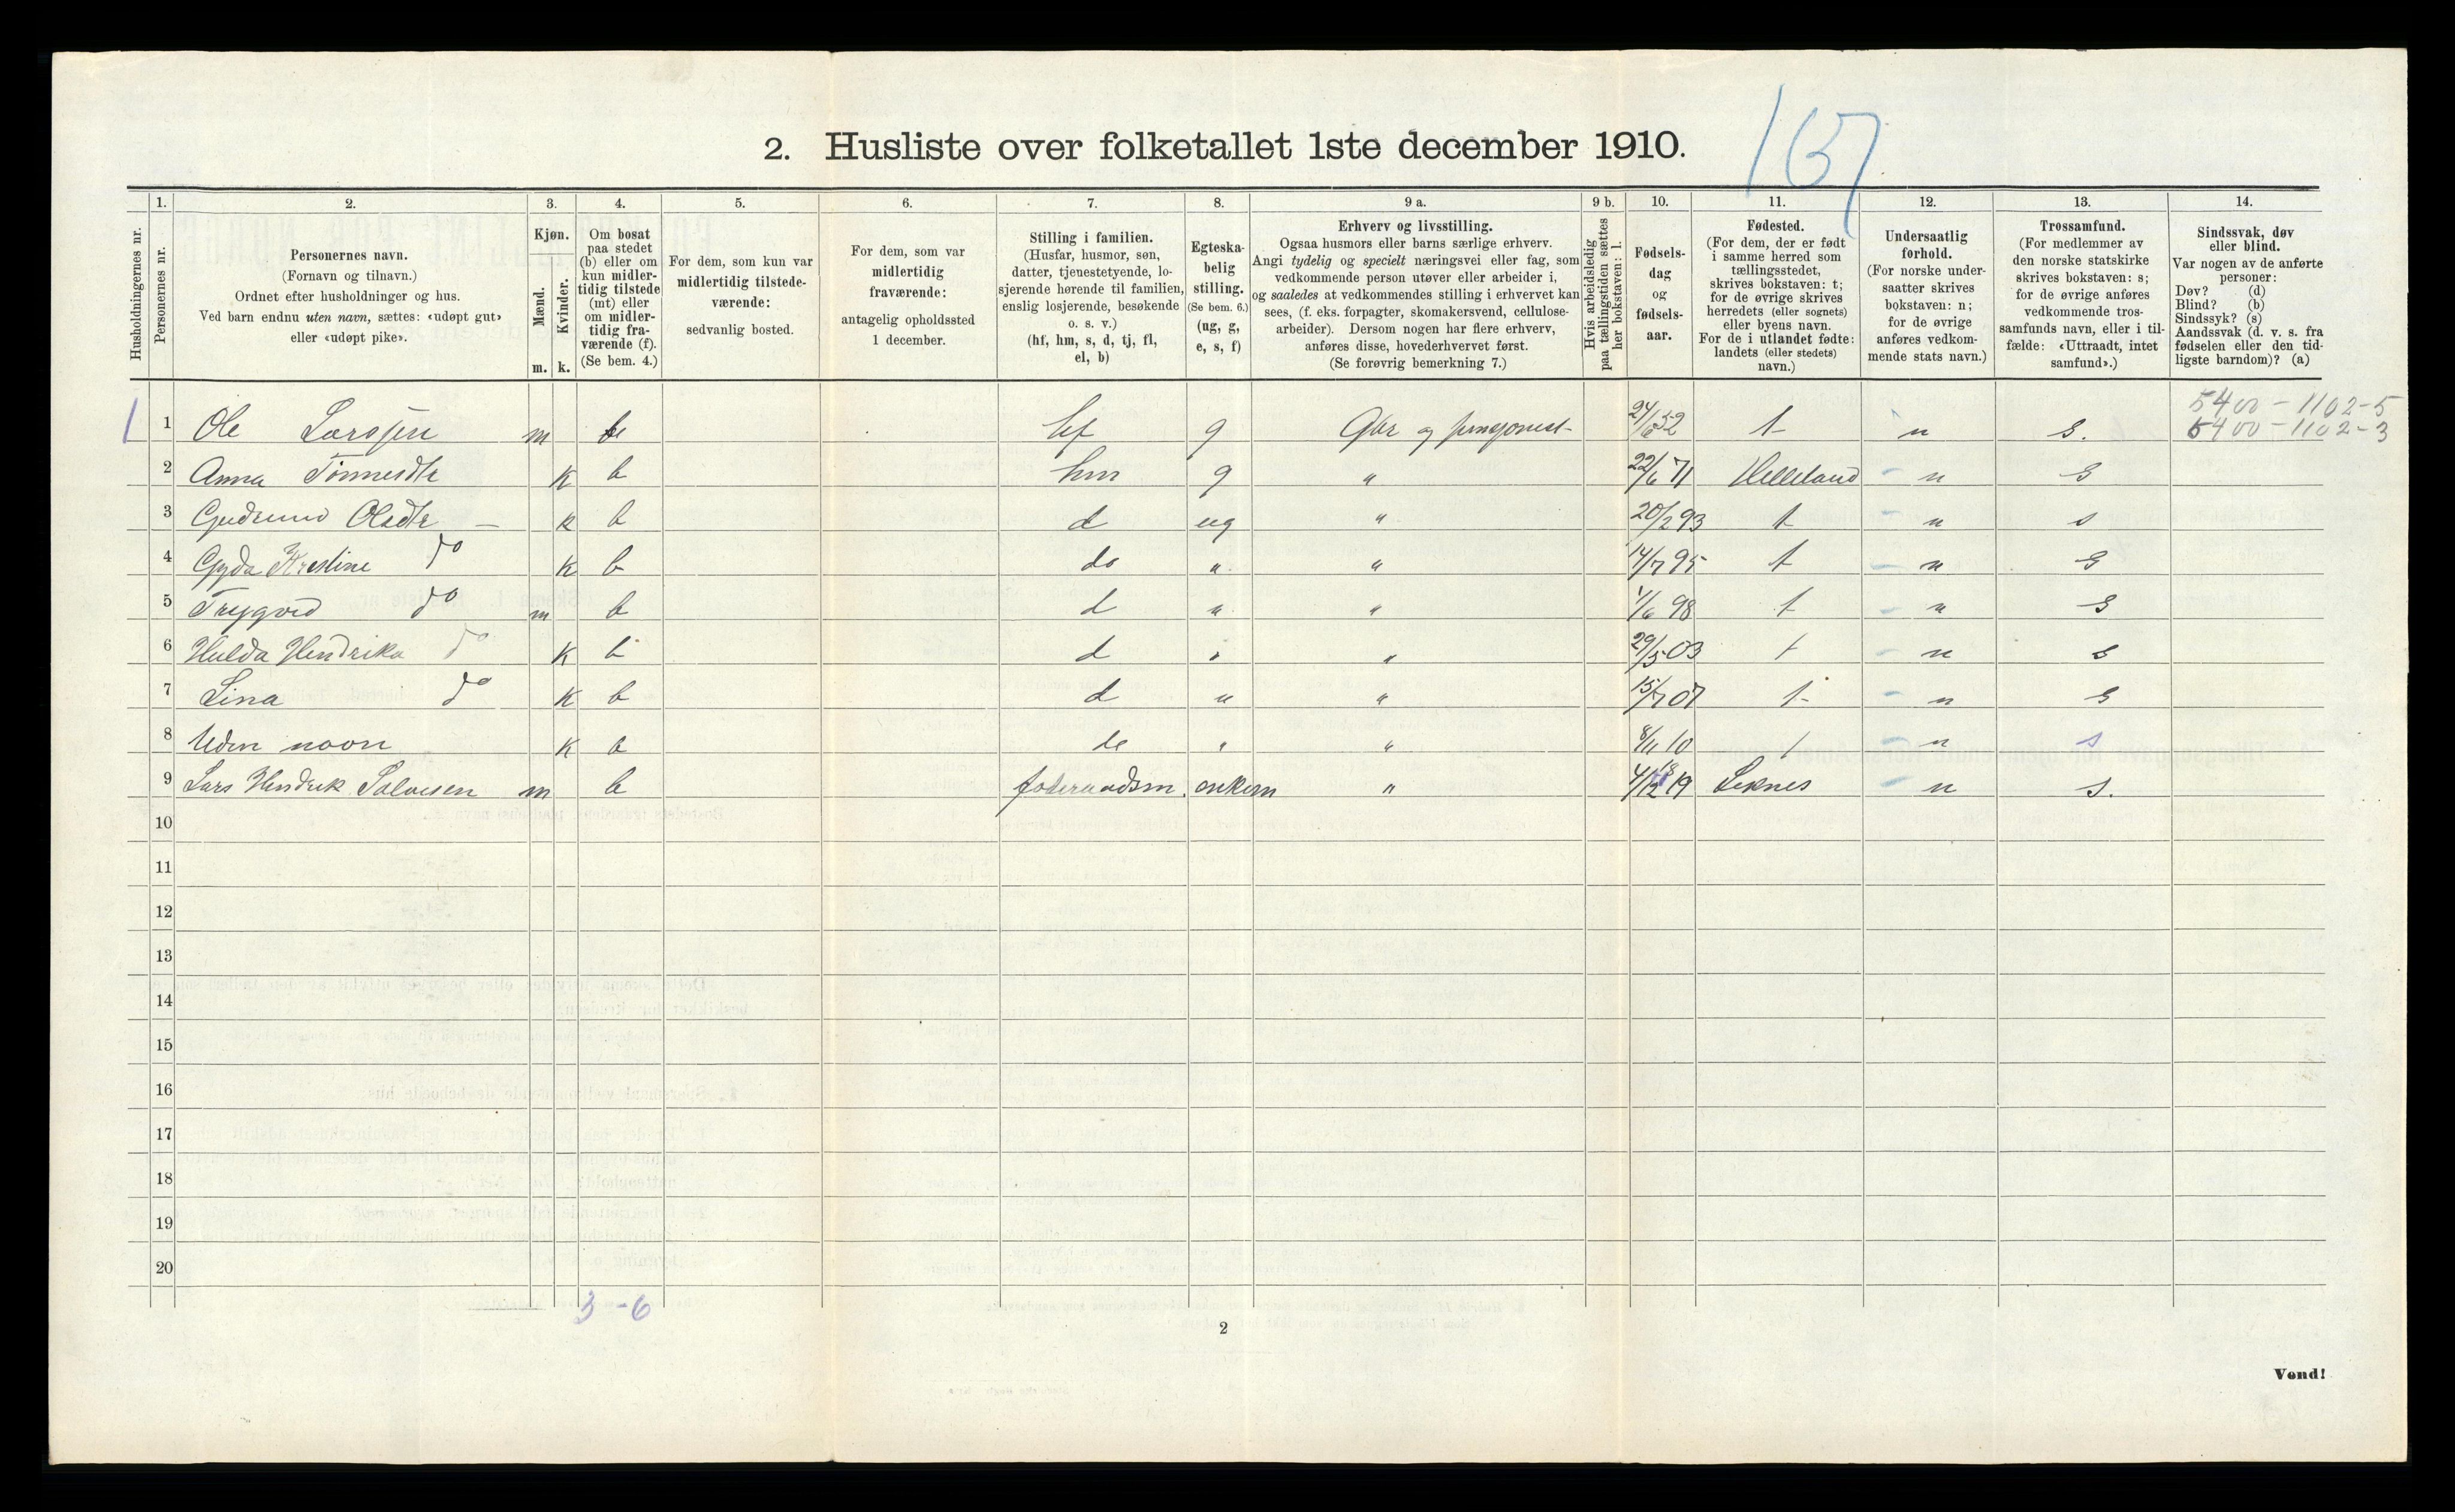 167
2. Husliste over folketallet 1ste december 1910.
Husholdningernes nr.
1. Personernes nr.
2. Personernes navn.
(Fornavn og tilnavn.)
Ordnet efter husholdninger og hus.
Ved barn endnu uten navn, sættes: «udøpt gut»
eller «udøpt pike».
3. Kjøn.
Mænd. Kvinder.
m. k.
4. Om bosat
paa stedet
(b) eller om
kun midler-
tidig tilstede
(mt) eller
om midler-
tidig fra-
værende (f).
(Se bem. 4.)
5. For dem, som kun var
midlertidig tilstede-
værende:
sedvanlig bosted.
6. For dem, som var
midlertidig
fraværende:
antagelig opholdssted
1 december.
7. Stilling i familien.
(Husfar, husmor, søn,
datter, tjenestetyende, lo-
sjerende hørende til familien,
enslig losjerende, besøkende
o. s. v.)
(hf, hm, s, d, tj, fl,
el, b)
8. Egteska-
belig
stilling.
(Se bem. 6.)
(ug, g,
e, s, f)
9 a. Erhverv og livsstilling.
Ogsaa husmors eller barns særlige erhverv.
Angi tydelig og specielt næringsvei eller fag, som
vedkommende person utøver eller arbeider i,
og saaledes at vedkommendes stilling i erhvervet kan
sees, (f. eks. forpagter, skomakersvend, cellulose-
arbeider). Dersom nogen har flere erhverv,
anføres disse, hovederhvervet først.
(Se forøvrig bemerkning 7.)
9 b. Hvis arbeidsledig
paa tællingstiden sættes
her bokstaven: l.
10. Fødsels-
dag
og
fødsels-
aar.
11. Fødested.
(For dem, der er født
i samme herred som
tællingsstedet,
skrives bokstaven: t;
for de øvrige skrives
herredets (eller sognets)
eller byens navn.
For de i utlandet fødte:
landets (eller stedets)
navn.)
12. Undersaatlig
forhold.
(For norske under-
saatter skrives
bokstaven: n;
for de øvrige
anføres vedkom-
mende stats navn.)
13. Trossamfund.
(For medlemmer av
den norske statskirke
skrives bokstaven: s;
for de øvrige anføres
vedkommende tros-
samfunds navn, eller i til-
fælde: «Uttraadt, intet
samfund».)
14. Sindssvak, døv
eller blind.
Var nogen av de anførte
personer:
Døv? (d)
Blind? (b)
Sindssyk? (s)
Aandssvak (d. v. s. fra
fødselen eller den tid-
ligste barndom)? (a)
5400-1102-5
1 1 Ole Larssen m b hf g Gbr og 24/6 52 t n s. 5400-1102-3
2 Anna Tønnesdtr k b hm g " 22/6 71 Helleland n s
3 Gudrund Olsdtr - k b d ug " 20/2 93 t n s
4 Gyda Kristine do k b do " " 14/7 95 t n s
5 Trygved do m b d " " 1/6 98 t n s
6 Hulda Hendrika do k b d " " 29/5 03 t n s
7 Lina do k b d " " 15/7 07 t n s
8 Uden navn k b do " " 8/11 10 t n s
9 Lars Hendrik Salvesen m b foderaadsm. enkem " 4/12 19 Seknes n s.
10
11
12
13
14
15
16
17
18
19
20
3-6
2
Vend!